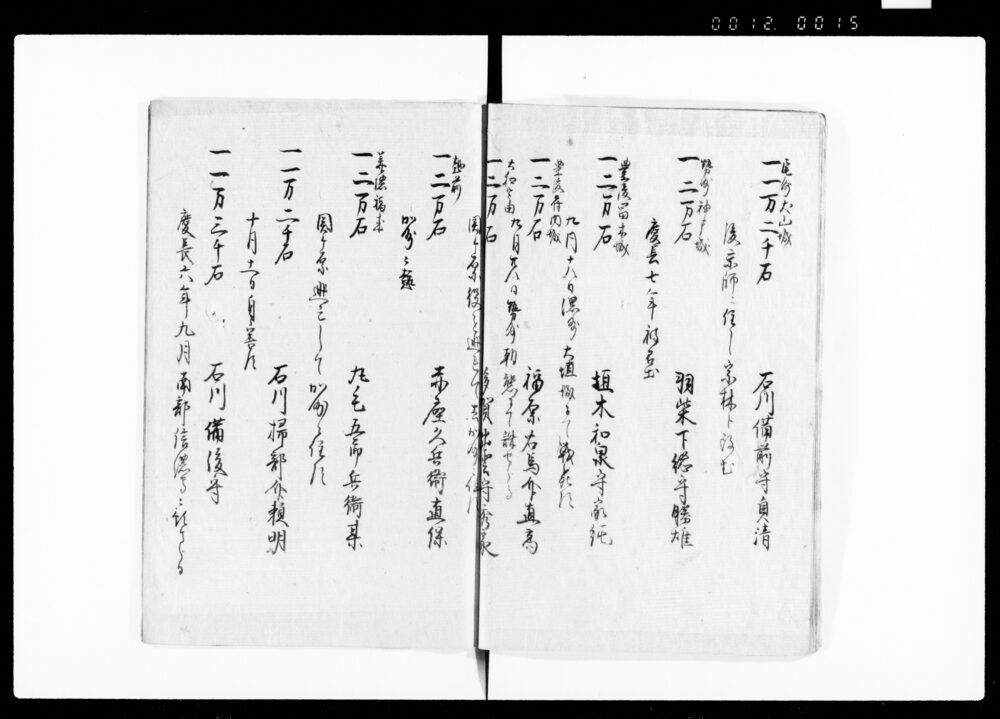 0012.0015
尾州犬山城
一一万二千石 石川備前守貞清
後京師ニ住し宗林ト改む
勢州神戸城
一二万石 羽柴下総守勝雄
慶長七年被召出
豊後富来城
一二万石 垣木和泉守家純
九月十八日濃州大垣城ニて戦死す
豊後府内城
一二万石 福原右馬介直高
九月廿八日勢州朝熊ニて誅せらる
一二万石 出雲守秀家
関ヶ原役を
越前
一二万石 赤座久兵衛直保
加州ニ
美濃福束
一二万石 丸毛五郎兵衛某
関ヶ原 にして加州ニ住す
一一万二千石 石川掃部介頼明
十月 日自害す
一一万三千石 石川備後守
慶長六年九月南部信濃守ニ